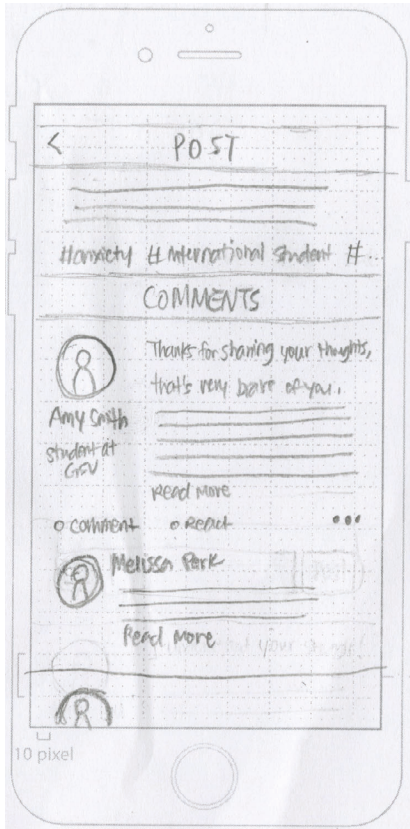 <
POST
#anxiety # International student #...
COMMENTS
Thanks for sharing your thoughts,
that's very brave of you.
Amy Smith
student at
GSV
Read More
comment
React
...
Melissa Park
Read More
10 pixel